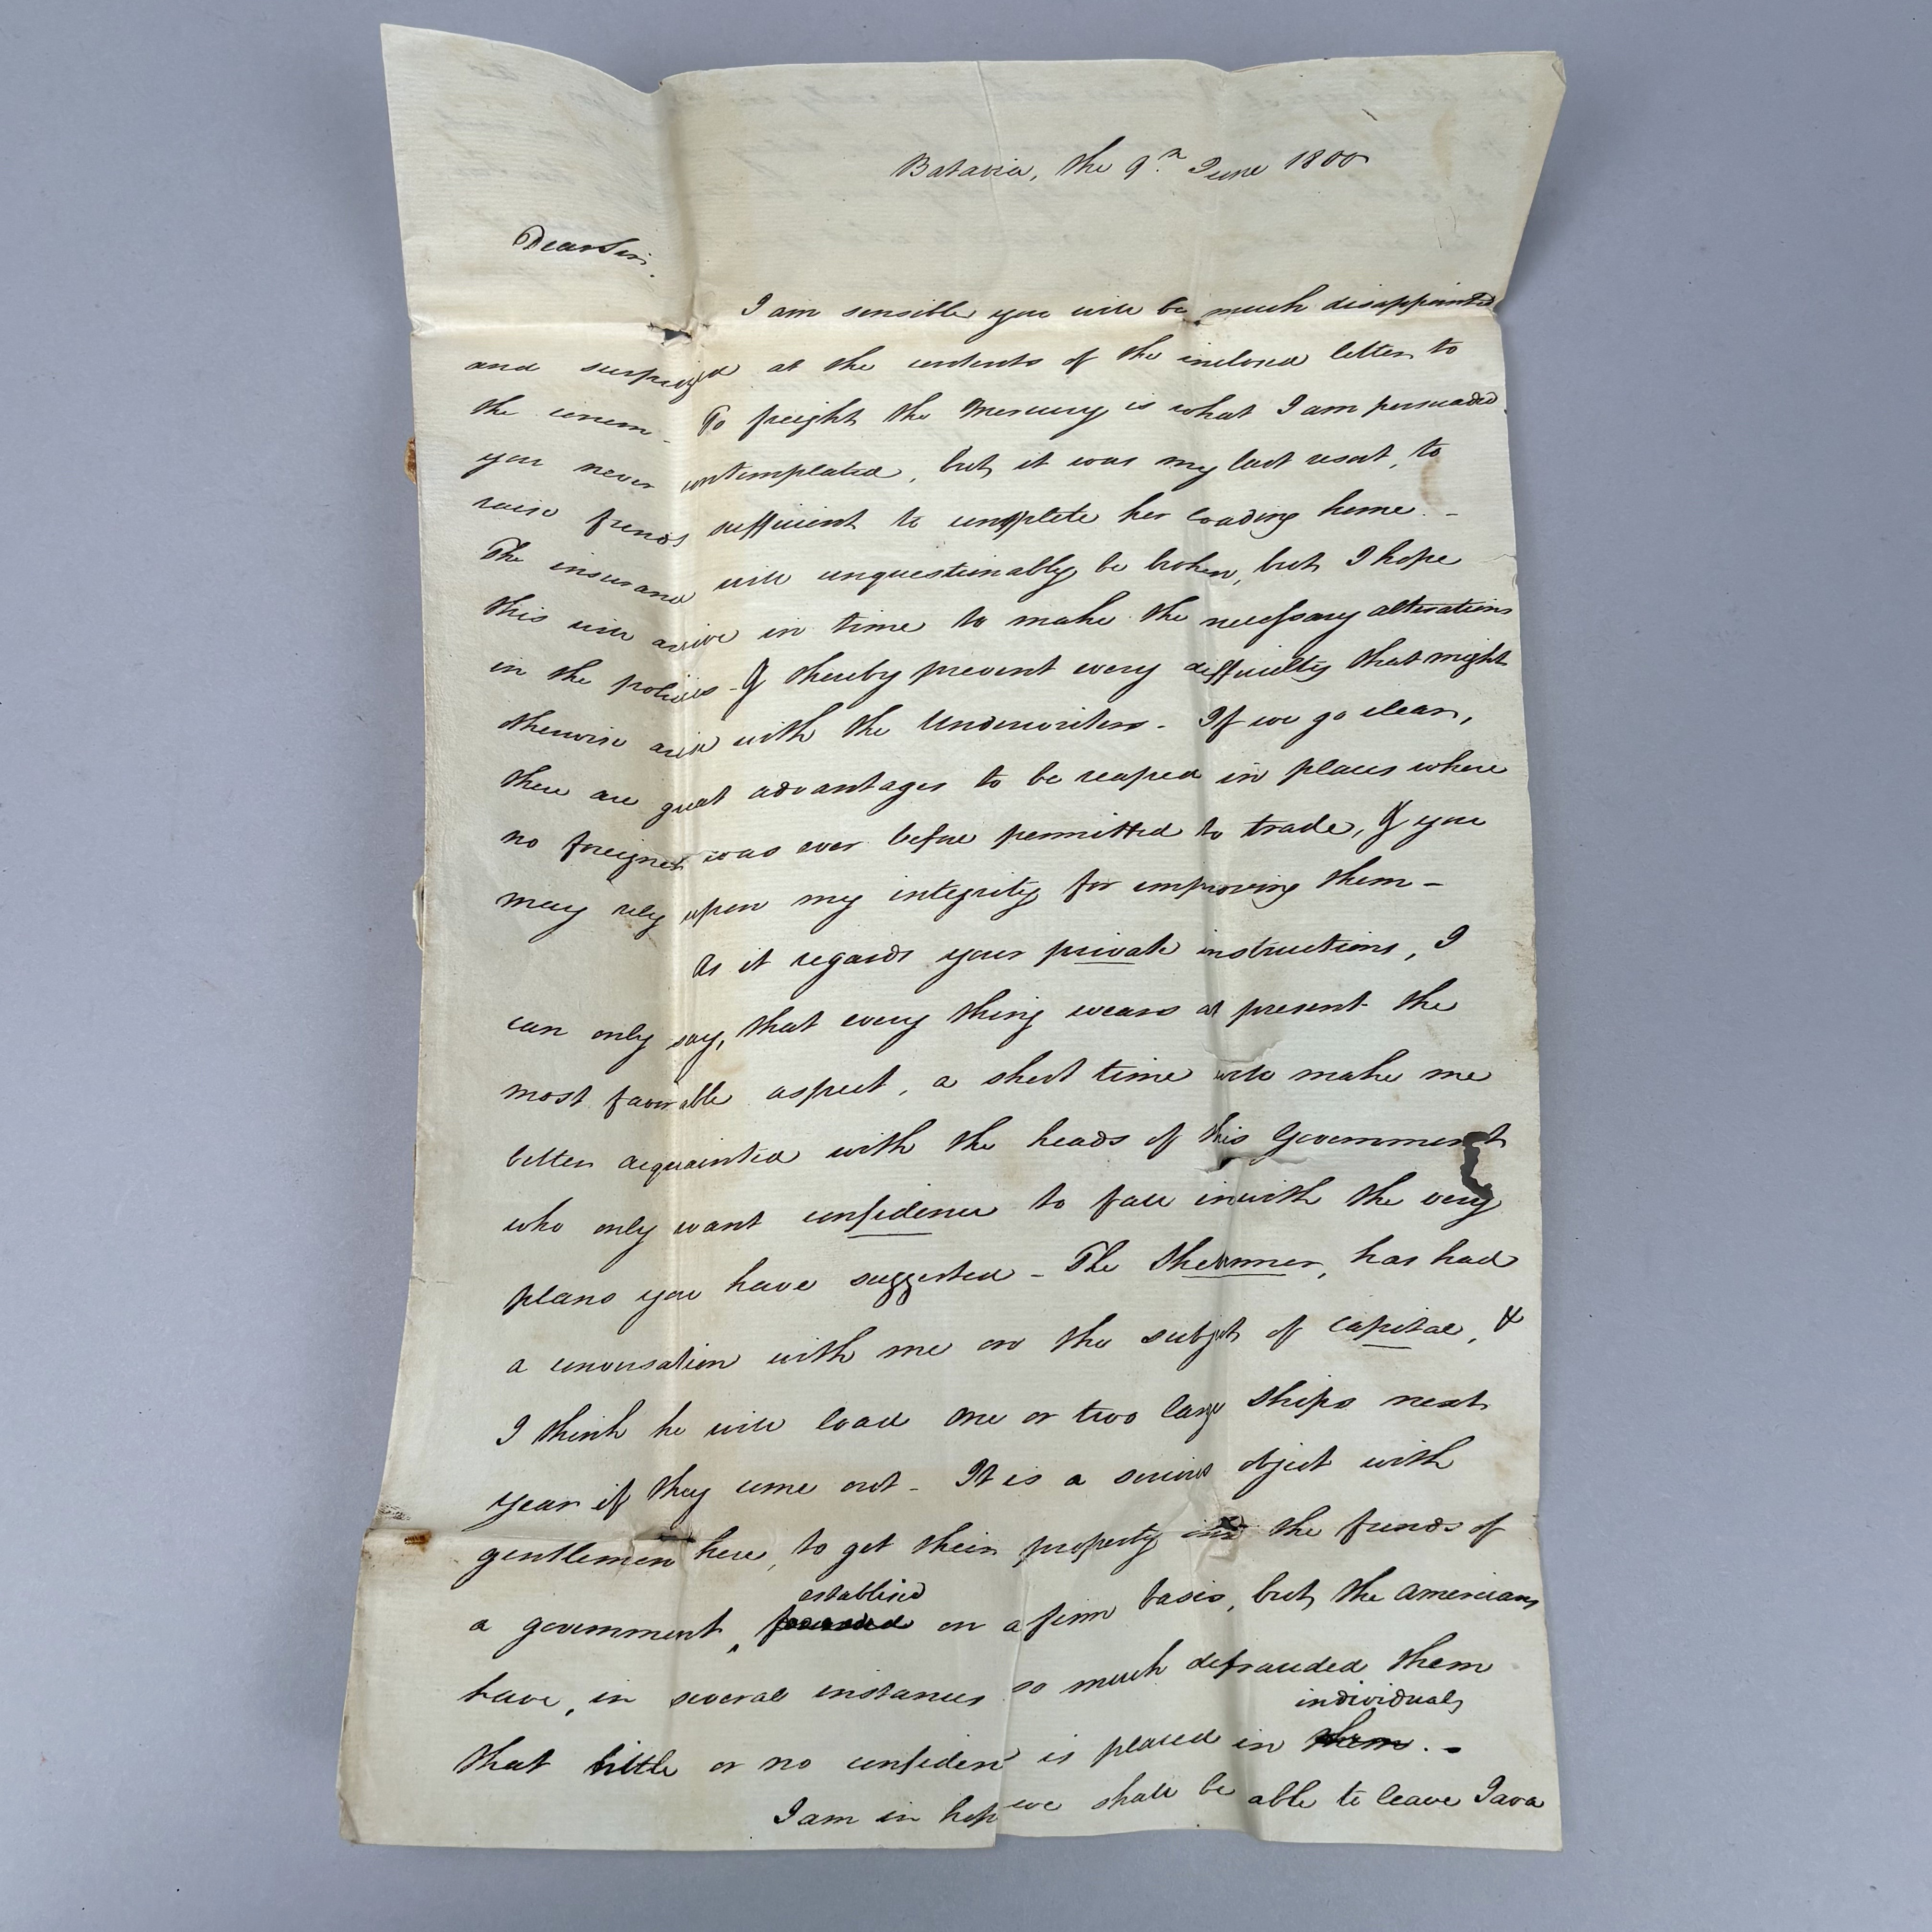 Batavia, the 9.th June 1800
Dear Sir.
I am sensible you will be much disappointed
and surprized at the contents of the inclosed letter to
the concern - To freight the Mercury is what I am persuaded
you never contemplated, but it was my last resort, to
raise funds sufficient to complete her loading home. -
The insurance will unquestionably be broken, but I hope
this will arive in time to make the necessary alterations
in the policies - & thereby prevent every difficulty that might
otherwise arise with the Underwriters - If we go clear,
there are great advantages to be reaped in places where
no foreigner was ever before permitted to trade, & you
may rely upon my integrity for improving them -
As it regards your private instructions, I
can only say, that every thing wears at present the
most favorable aspect, a short time will make me
better acquainted with the heads of this Government
who only want confidence to fall in with the very
plans you have suggested - The , has had
a conversation with me on the subject of capital, &
I think he will load one or two large ships next
year if they come out - It is a serious object with
gentlemen here, to get their property in the funds of
established
a government, founded on a firm basis, but the Americans
have, in several instances so much defrauded them
individuals
that little or no confidence is placed in them. -
I am in hope we shall be able to leave Java